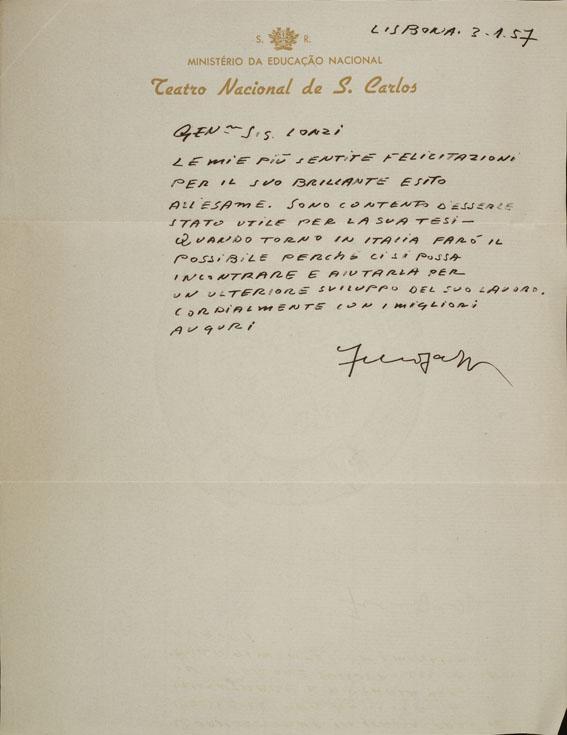 LISBONA. 3.1.57
S. R.
MINISTÉRIO DA EDUCAÇÃO NACIONAL
Teatro Nacional de S. Carlos
GEN.ma Sig. LONZI
LE MIE PIÙ SENTITE FELICITAZIONI
PER IL SUO BRILLANTE ESITO
ALL'ESAME. SONO CONTENTO D'ESSERLE
STATO UTILE PER LA SUA TESI—
QUANDO TORNO IN ITALIA FARÒ IL
POSSIBILE PERCHÈ CI SI POSSA
INCONTRARE E AIUTARLA PER
UN ULTERIORE SVILUPPO DEL SUO LAVORO.
CORDIALMENTE CON I MIGLIORI
AUGURI